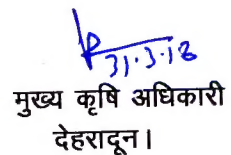 31.3.18
मुख्य कृषि अधिकारी
देहरादून।